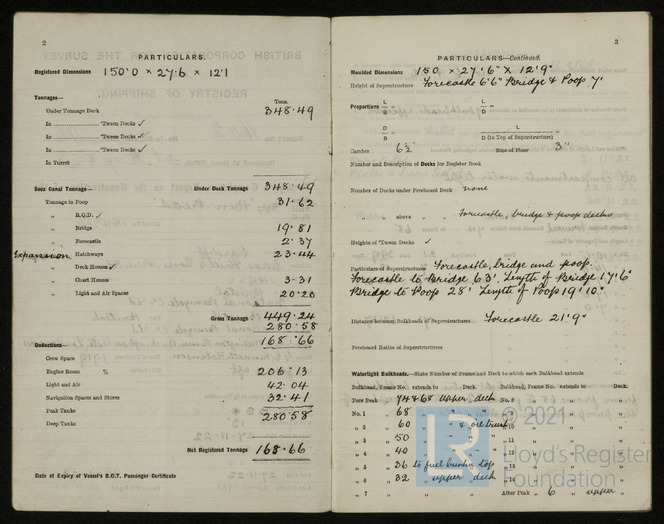 2
PARTICULARS.
Registered Dimensions 150'0 × 27'6 × 12'1
Tonnages—
Tons.
Under Tonnage Deck 348.49
In 'Tween Decks ✓
In 'Tween Decks ✓
In 'Tween Decks ✓
In Turret
Suez Canal Tonnage— Under Deck Tonnage 348.49
Tonnage in Poop 31.62
„ R.Q.D. ✓
„ Bridge 19.81
„ Forecastle 2.37
Expansion „ Hatchways 23.44
„ Deck Houses ✓
„ Chart Houses 3.31
„ Light and Air Spaces 20.20
Gross Tonnage 449.24
280.58
168.66
Deductions—
Crew Space
Engine Room % 206.13
Light and Air 42.04
Navigation Spaces and Stores 32.41
Peak Tanks 280.58
Deep Tanks
Net Registered Tonnage 168.66
Date of Expiry of Vessel's B.O.T. Passenger Certificate
3
PARTICULARS—Continued.
Moulded Dimensions 150 × 27'6" × 12'9"
Height of Superstructure Forecastle 6'6" Bridge & Poop 7'
Proportions L/B = L/D =
D/B = L/D (to Top of Superstructure) =
Camber 6½" Rise of Floor 3"
Number and Description of Decks for Register Book
Number of Decks under Freeboard Deck none
„ above „ „ Forecastle, bridge & poop decks
Heights of 'Tween Decks ✓
Particulars of Superstructures Forecastle, bridge and poop.
Forecastle to Bridge 63', Length of Bridge 17'6"
Bridge to Poop 28' Length of Poop 19'10"
Distance between Bulkheads of Superstructures Forecastle 21'9"
Freeboard Ratios of Superstructures
Watertight Bulkheads.—State Number of Frame and Deck to which each Bulkhead extends
Bulkhead, Frame No. extends to Deck. Bulkhead, Frame No. extends to Deck.
Fore Peak „ 74 & 68 upper deck No. 8
No. 1 68 „ „
„ 2 60 „ „ „ 10
„ 3 50 „ „ 11
„ 4 40 „ „
„ 5 36 to fuel bunker top
„ 6 32 upper deck „ 14
„ 7 After Peak „ 6 „ upper „
© 2021
Lloyd's Register
Foundation